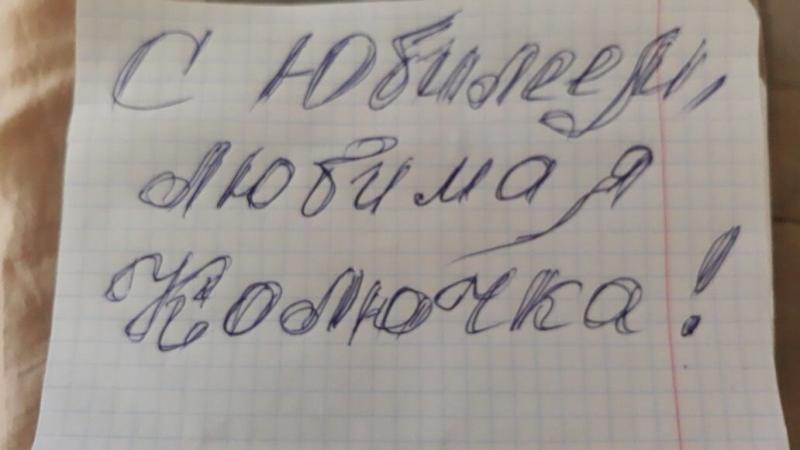 С Юбилеем,
любимая
Колючка!